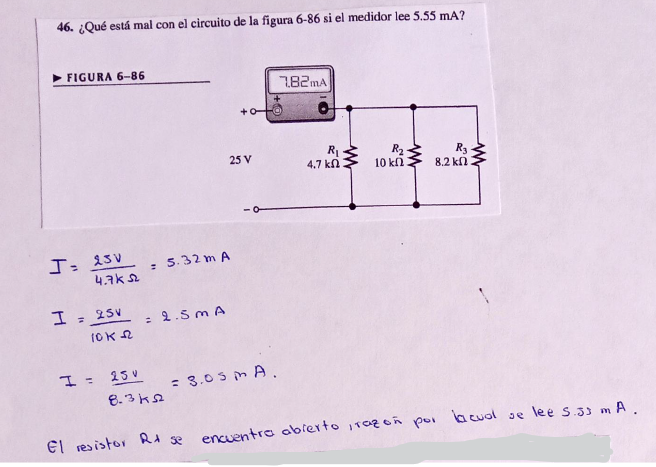 46. ¿Qué está mal con el circuito de la figura 6-86 si el medidor lee 5.55 mA?
▶ FIGURA 6–86
7.82 mA
+ –
+
25 V
R1
4.7 kΩ
R2
10 kΩ
R3
8.2 kΩ
–
I = 25V / 4.7KΩ = 5.32 m A
I = 25V / 10KΩ = 2.5 m A
I = 25V / 8.3KΩ = 3.05 m A.
El resistor R1 se encuentra abierto, razón por la cual se lee 5.55 m A.